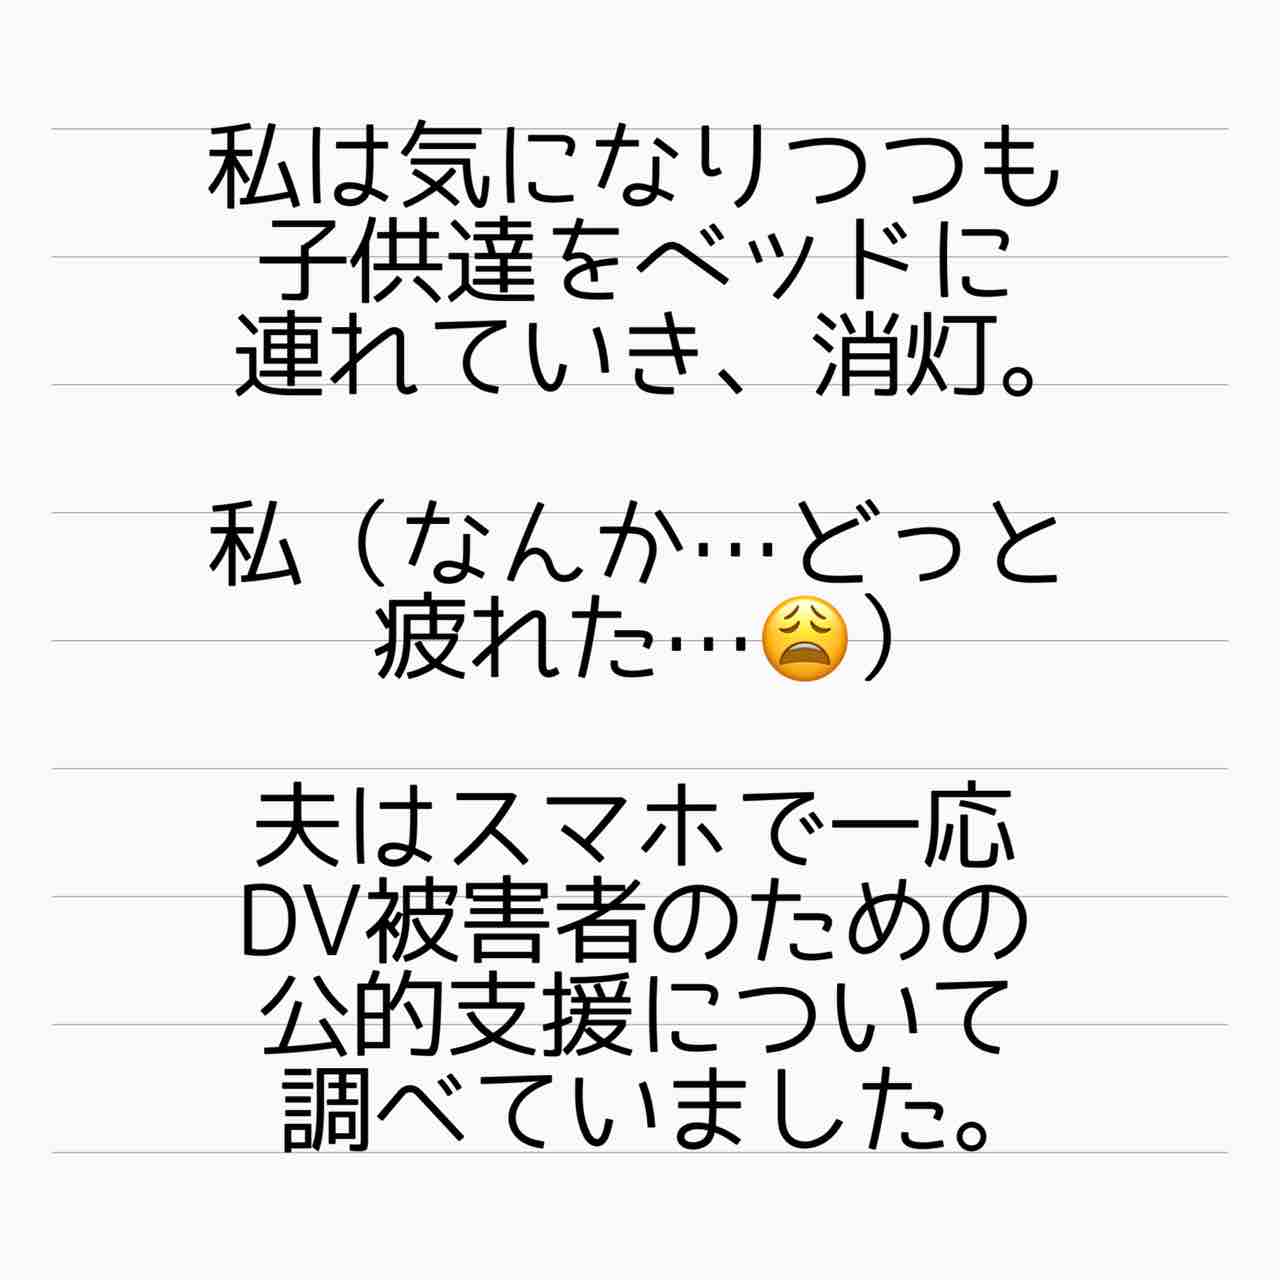 私は気になりつつも
子供達をベッドに
連れていき、消灯。
私（なんか…どっと
疲れた…😩）
夫はスマホで一応
DV被害者のための
公的支援について
調べていました。